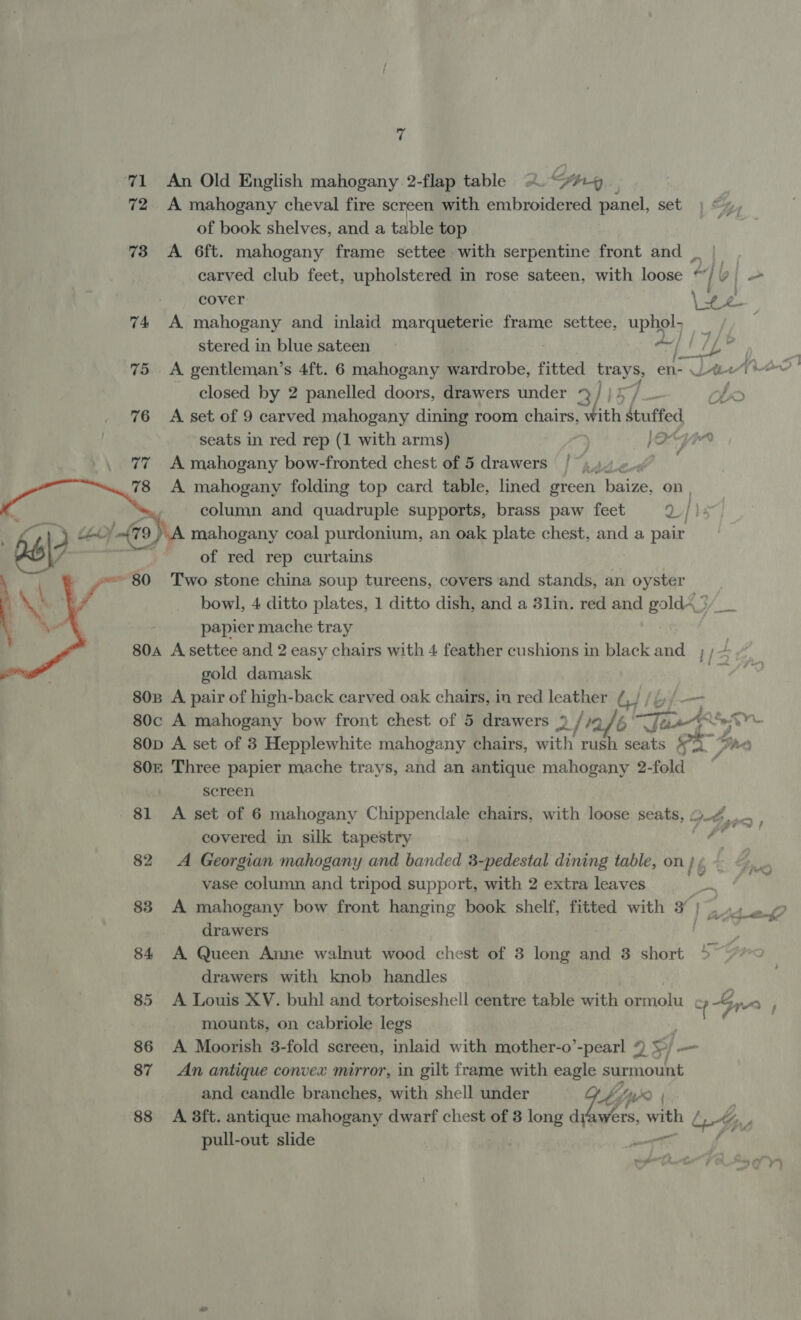 7
71 An Old English mahogany 2-flap table
72 A mahogany cheval fire screen with embroidered panel, set
of book shelves, and a table top
73 A 6ft. mahogany frame settee with serpentine front and
carved club feet, upholstered in rose sateen, with loose
cover
74 A mahogany and inlaid marqueterie frame settee, uphol-
stered in blue sateen
75 A gentleman's 4ft. 6 mahogany wardrobe, fitted trays, en-
closed by 2 panelled doors, drawers under
76 A set of 9 carved mahogany dining room chairs, with stuffed
seats in red rep (1 with arms)
77 A mahogany bow-fronted chest of 5 drawers
78 A mahogany folding top card table, lined green baize, on
column and quadruple supports, brass paw feet
79 A mahogany coal purdonium, an oak plate chest, and a pair
of red rep curtains
80 Two stone china soup tureens, covers and stands, an oyster
bowl, 4 ditto plates, 1 ditto dish, and a 31in. red and gold
papier mache tray
80A A settee and 2 easy chairs with 4 feather cushions in black and
gold damask
80B A pair of high-back carved oak chairs, in red leather
80C A mahogany bow front chest of 5 drawers
80D A set of 3 Hepplewhite mahogany chairs, with rush seats
80E Three papier mache trays, and an antique mahogany 2-fold
screen
81 A set of 6 mahogany Chippendale chairs, with loose seats,
covered in silk tapestry
82 A Georgian mahogany and banded 3-pedestal dining table, on
vase column and tripod support, with 2 extra leaves
83 A mahogany bow front hanging book shelf, fitted with 3
drawers
84 A Queen Anne walnut wood chest of 3 long and 3 short
drawers with knob handles
85 A Louis XV. buhl and tortoiseshell centre table with ormolu
mounts, on cabriole legs
86 A Moorish 3-fold screen, inlaid with mother-o'-pearl
87 An antique convex mirror, in gilt frame with eagle surmount
and candle branches, with shell under
88 A 3ft. antique mahogany dwarf chest of 3 long drawers, with
pull-out slide